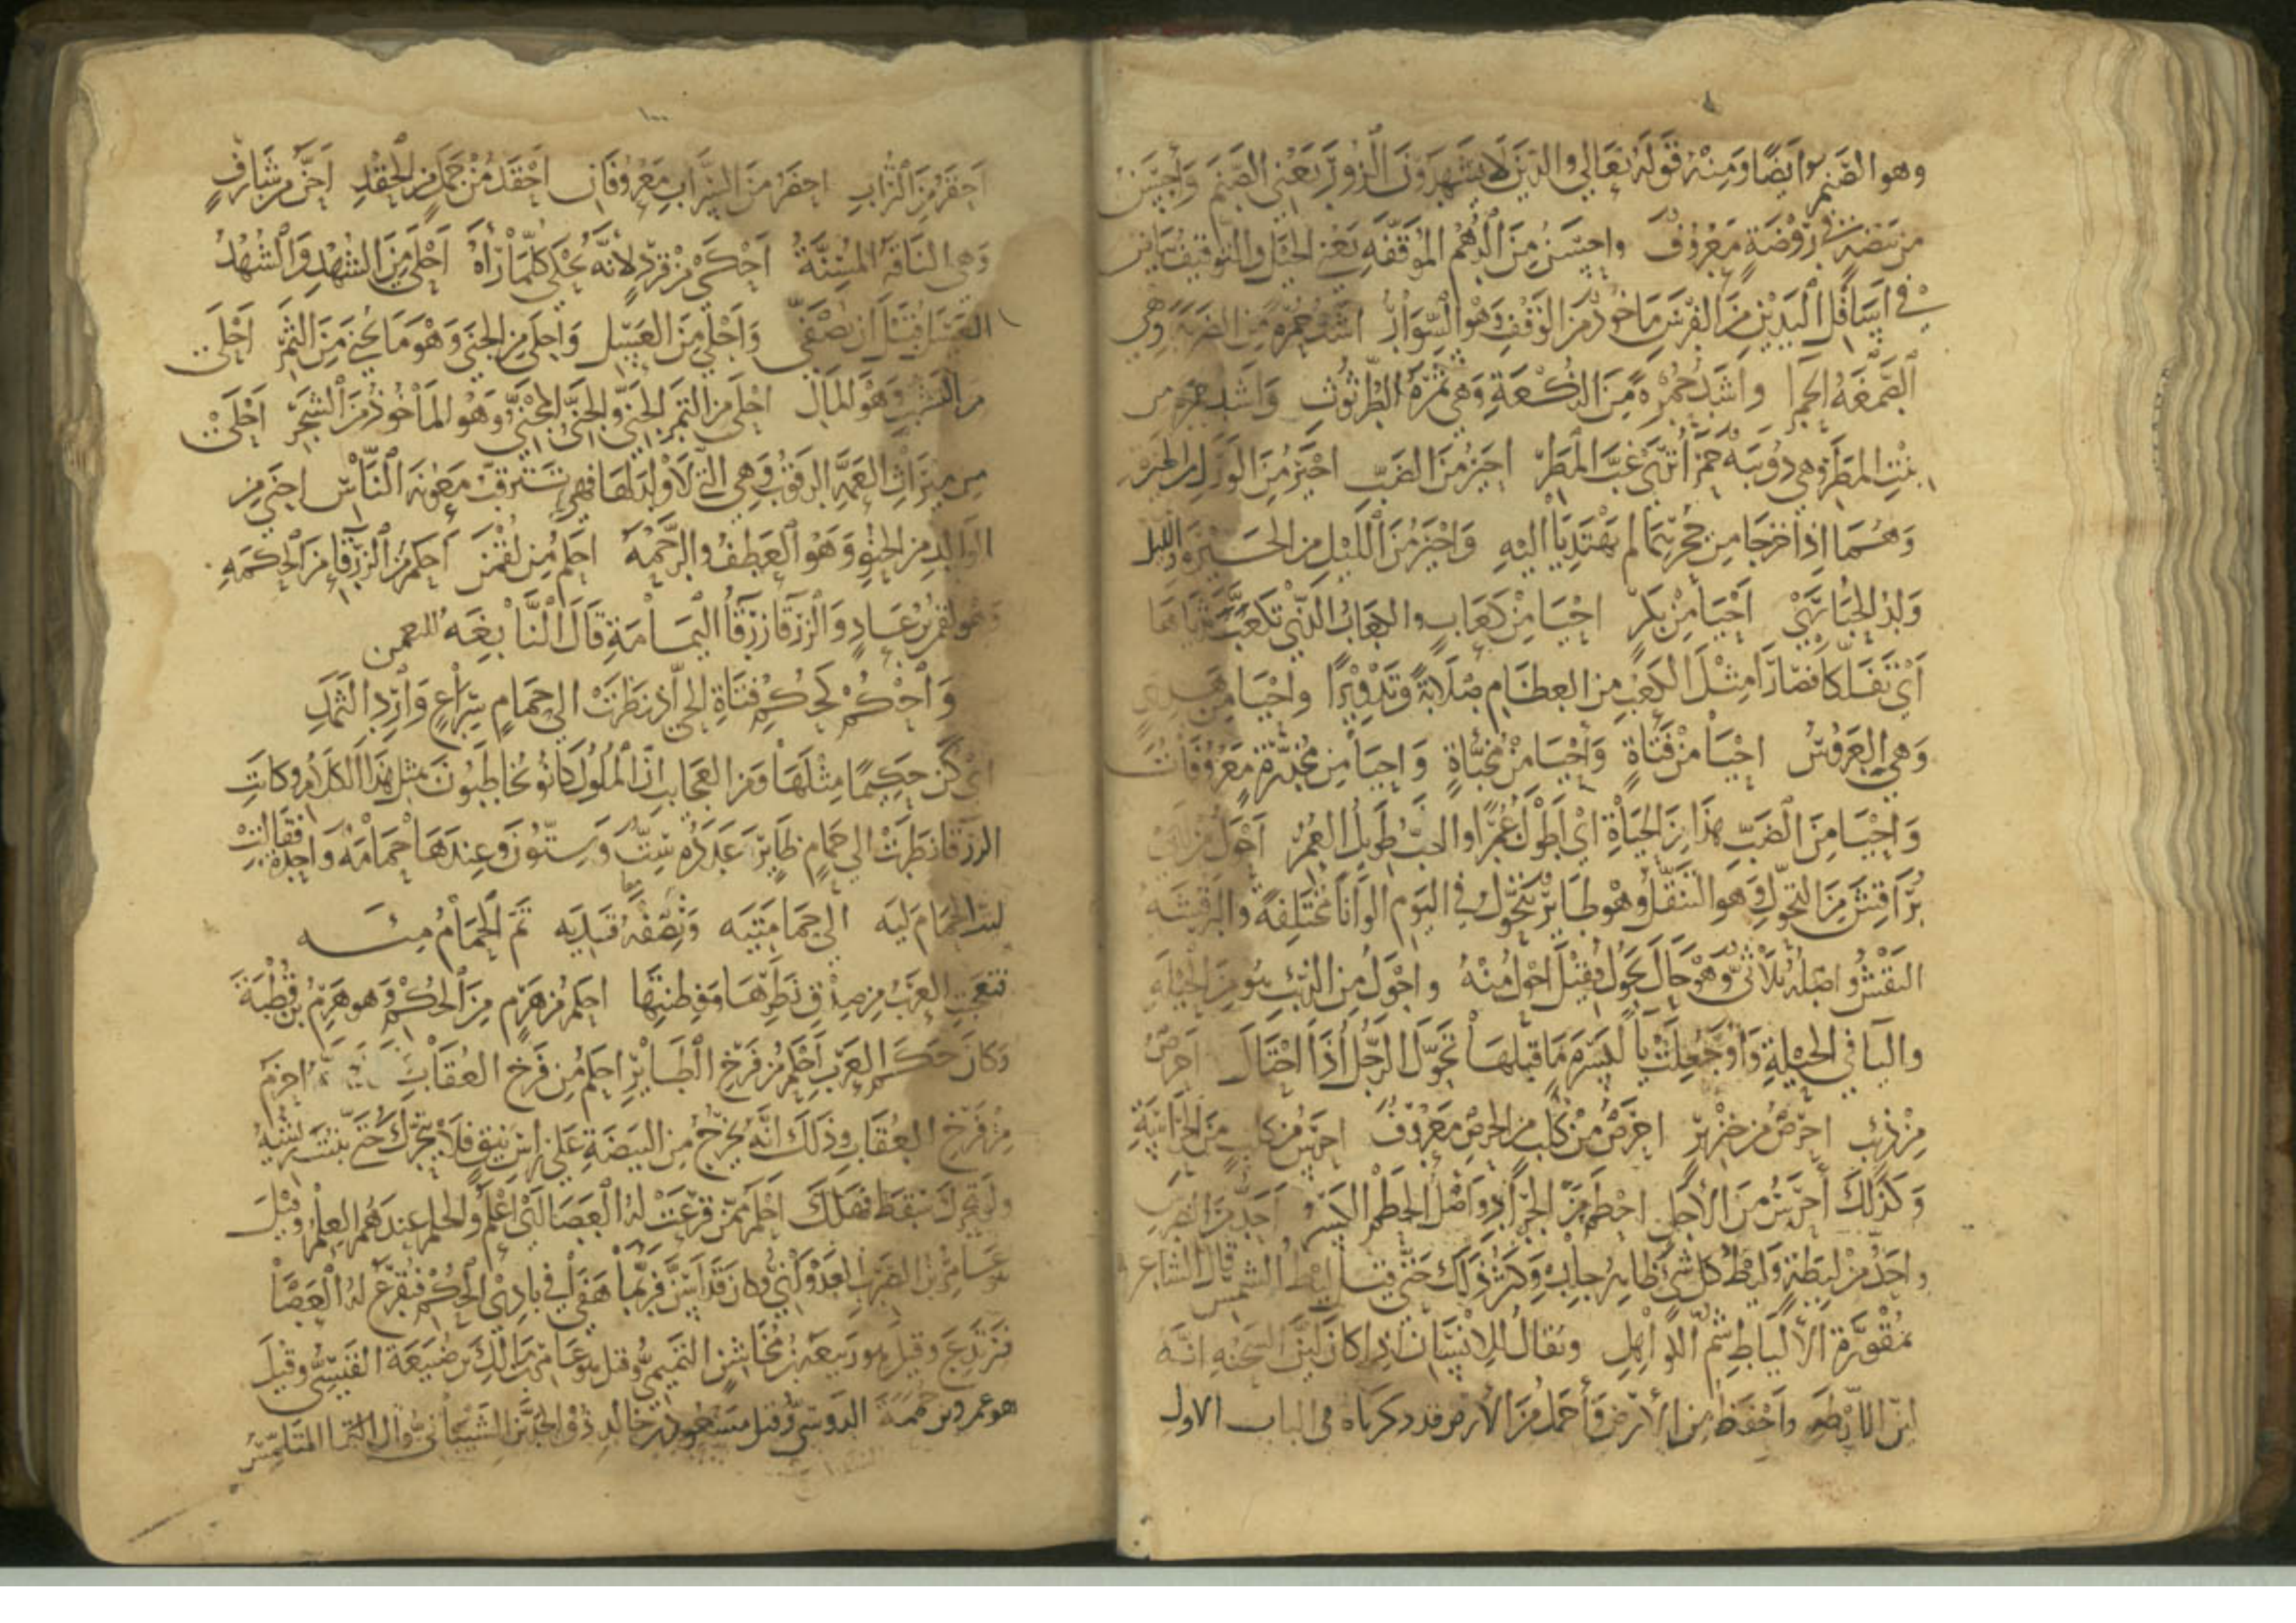 وهو الصنم ايضا ومنه قوله تعالي والذين لا يشهدون الزور يعني الصنم وأحسن
من بيضة في روضة معروف واحسن من الدهم الموقفه يعني الخيل والتوقيف بياض
في اسافل اليدين من الفرس ماخوذ من الوقف وهو السوار اشد حمرة من الصربة وهي
الصمغة الحمرا واشد حمرة من النكعة وهي ثمرة الطرثوث واشد حمرة من
بنت المطر وهي دويبه حمرا تري غب المطر احير من الضب احير من الورل من الحيرة
وهما اذا خرجا من جحريهما لم يهتديا اليه واحير من الليل من الحيرة والليل
ولد الحباري احيا من بكر احيا من كعاب والكعاب التي تكعب ثدياها
اي تفلكا فصارا مثل الكعب من العظام صلابة وتدويرا واحيا من هدي
وهي العروس احيا من فتاة وأحيا من مخباة واحيا من مخدرة معروفات
واحيا من الضب هذا من الحياة اي اطول عمرا والضب طويل العمر احول من ابي
براقش من التحول وهو التنقل وهو طاير يتحول في اليوم الوانا مختلفة والبرقشه
النقش واصله ثلاثي وهو حال يحول فقيل احول منه واحول من الذئب هو من الحيلة
واليا في الحيلة واو جعلت يا لكسرة ما قبلها تحول الرجل اذا احتال احرص
من ذئب احرص من خنزير احرص من كلب من الحرص معروف احرس من كلب من الحراسة
وكذلك أحرس من الأجل احطم من الجراد واصل الحطم الكسر أحد من الضرس
واحد من ليطة وليط كل شي ظاهره جلده وكثر ذلك حتي قيل ليط الشمس قال الشاعر
مقورة الألياط شم الكواهل ويقال للانسان اذا كان لين السحنه انه
لين الليط واحفظ من الأرض وأحمل من الأرض قد ذكرناه في الباب الاول
١٠٠
احقر من التراب احقر من التراب معروفان احقد من جمل من الحقد احن من شارف
وهي الناقه المسنة احكي من قرد لانه يحكي كلما راه احلي من الشهد والشهد
العسل قبل ان يصفي واحلي من العسل واحلي من الجني وهو ما يجني من الثمر احلي
من النشب وهو المال احلي من التمر الجني والجني المجني وهو المأخوذ من الشجر احلي
من ميراث العمة الرقوب وهي التي لا ولد لها فهي تسترق معونة الناس احني من
الوالد من الحنو وهو العطف والرحمه احكم من لقمن احكم من الزرقا من الحكمه
وهو لقمن بن عاد والزرقا زرقا اليمامة قال النابغه للنعمن
واحكم كحكم فتاة الحي اذ نظرت الي حمام سراع وارد الثمد
اي كن حكيما مثلها ومن العجايب ان الملوك كانوا يخاطبون بمثل هذا الكلام وكانت
الزرقا نظرت الي حمام طاير عدده ست وستون وعندها حمامه واحدة فقالت
ليت الحمام ليه الي حمامتيه ونصفه قديه تم الحمام ميه
فتعجبت العرب من صدق نظرها وفطنتها احكم من هرم من الحكم وهو هرم بن قطبة
وكان حكم العرب احلم من فرخ الطاير احلم من فرخ العقاب احزم
من فرخ العقاب وذلك انه يخرج من البيضة علي راس نيق فلا يتحرك حتي ينبت ريشه
ولو تحرك سقط فهلك احلم ممن قرعت له العصا اي اعلم والحلم عندهم العلم وقيل
هو عامر بن الظرب العدواني وكان قد اسن فربما هفا في بادي الحكم فتقرع له العصا
فيرتدع وقيل هو ربيعة بن مخاشن التميمي وقيل هو عامر بن مالك بن ضبيعة القيسي وقيل
هو عمرو بن حممة الدوسي وقيل مسعود بن خالد ذو الجدين الشيباني قال المتلمس